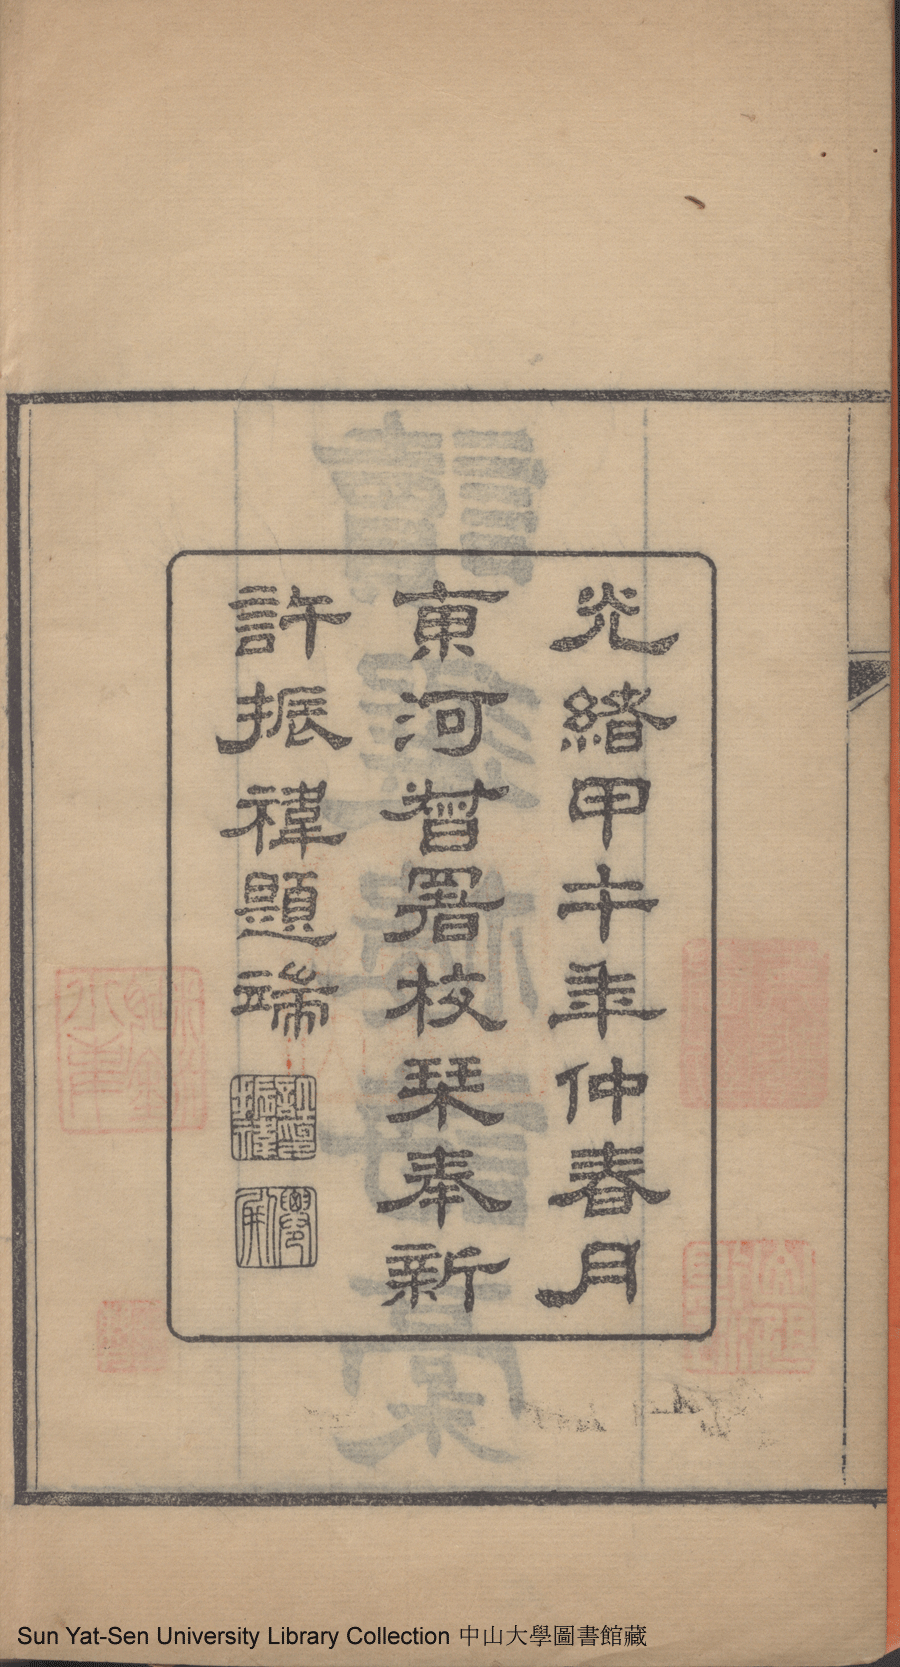 光緒甲午年仲春月
東河督署校栞奉新
許振禕題端
僊屏
Sun Yat-Sen University Library Collection 中山大學圖書館藏